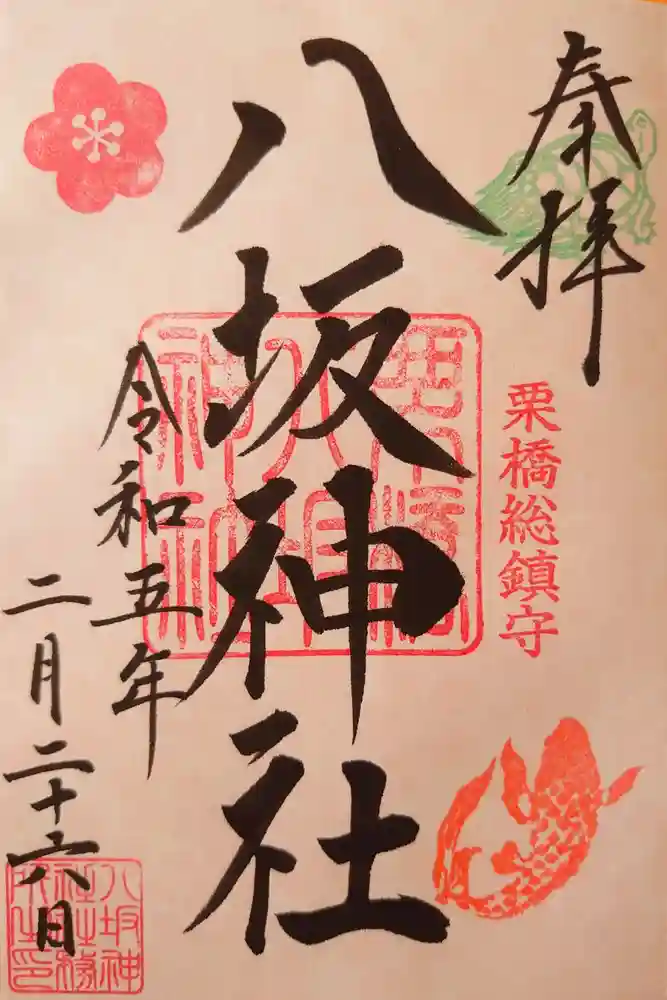 奉拝
栗橋総鎮守
八坂神社
令和五年
二月二十六日
栗橋八坂神社